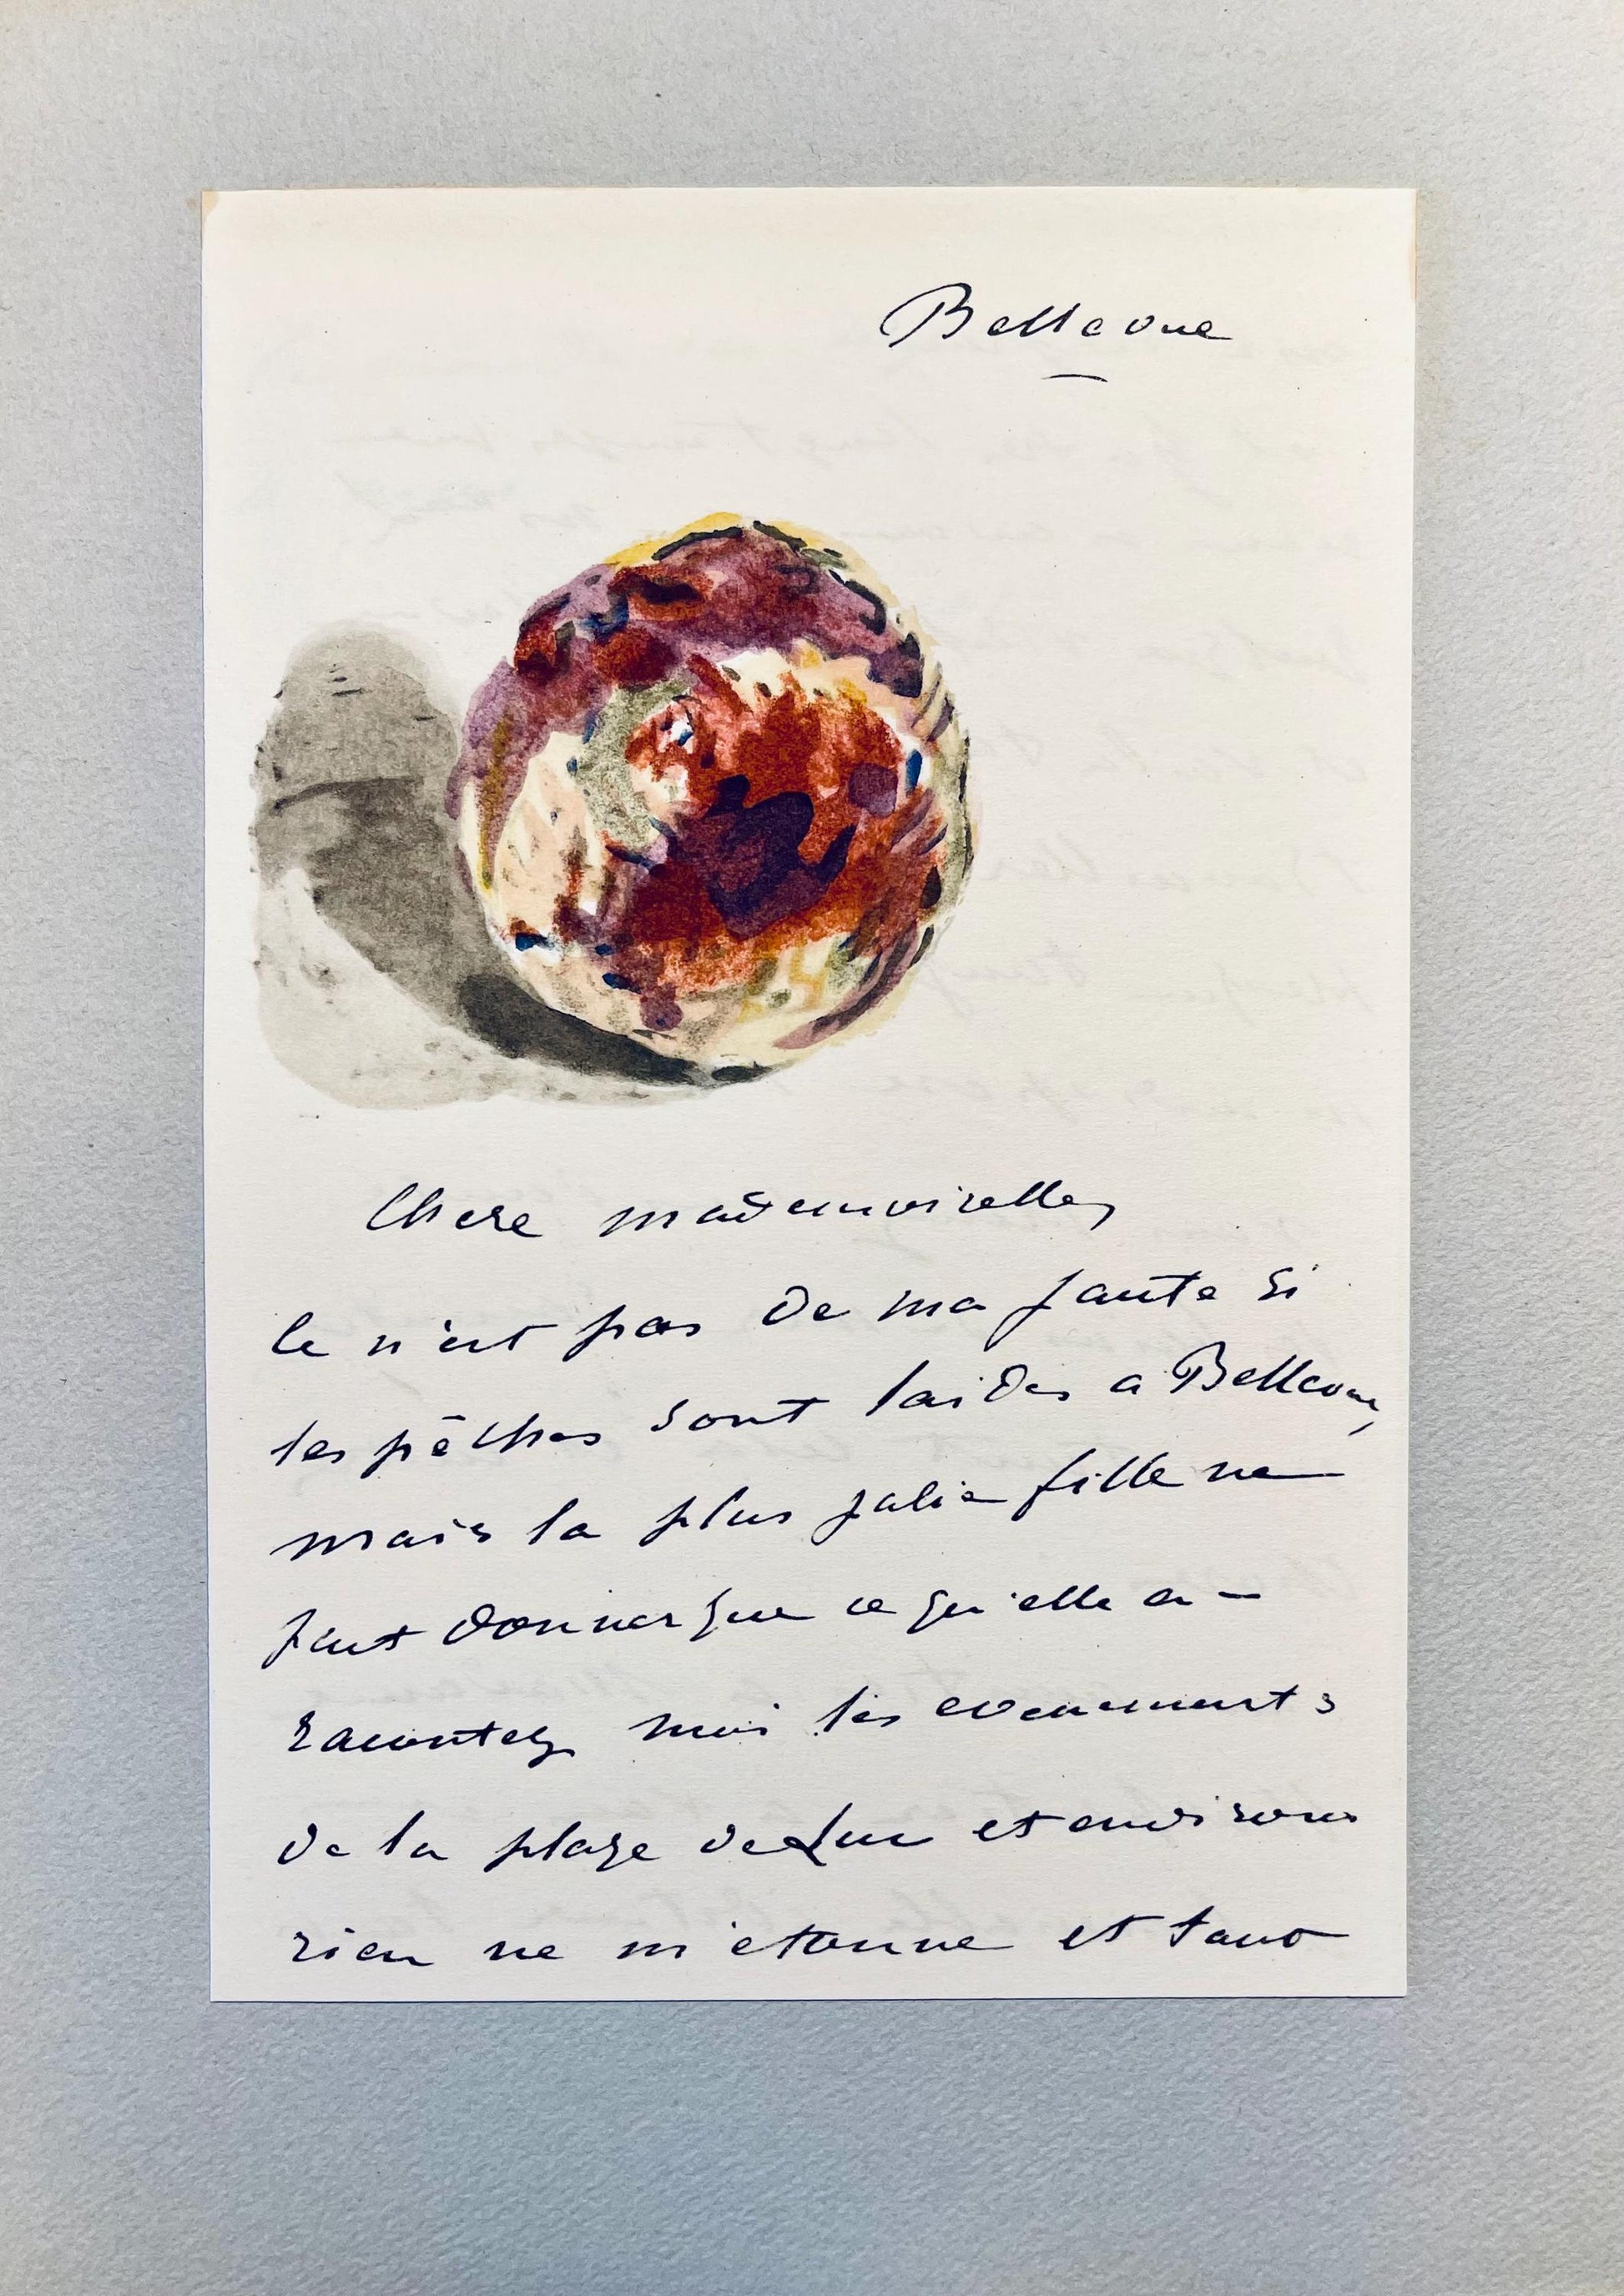 Bellevue
Chere mademoiselle,
Ce n'est pas de ma faute si
les pêches sont laides a Bellevue,
mais la plus jolie fille ne
peut donner que ce qu'elle a –
racontez moi les evenements
de la plage de Luc et environs
rien ne m'etonne et tout